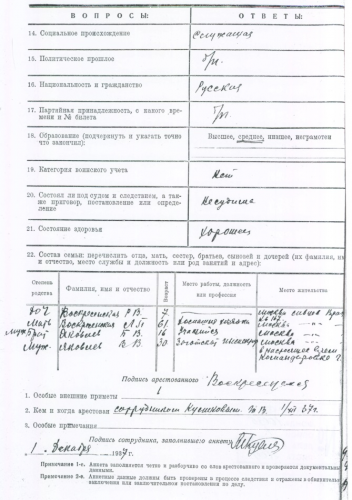 ВОПРОСЫ: ОТВЕТЫ:
14. Социальное происхождение Служащая
15. Политическое прошлое б/п.
16. Национальность и гражданство Русская
17. Партийная принадлежность, с какого времени и № билета б/п.
18. Образование (подчеркнуть и указать точно что закончил): Высшее, среднее, низшее, неграмотен
19. Категория воинского учета Нет
20. Состоял ли под судом и следствием, а также приговор, постановление или определение Несудима
21. Состояние здоровья Хорошее
22. Состав семьи: перечислить отца, мать, сестер, братьев, сыновей и дочерей (их фамилия, имя и отчество, место службы и должность или род занятий и адрес):
Степень родства Фамилия, имя и отчество Возраст Место работы, должность или профессия Место жительства
Дочь Воскресенская Р В 7 Москва Сивцев
Мать Воскресенская 61 Москва
Брат Яковлев Б В 16 Учащийся Москва
Муж Яковлев В В 30 Москва
в настоящее время
командировке
Подпись арестованного Воскресенская
1. Особые внешние приметы
2. Кем и когда арестован сотрудником 37г.
3. Особые примечания
Подпись сотрудника, заполнявшего анкету
1. Декабря 1937 г.
Примечания 1-е. Анкета заполняется четко и разборчиво со слов арестованного и проверяется документальными данными.
Примечание 2-е. Анкетные данные должны быть проверены в процессе следствия и отражены в обвинительном заключении или заключительном постановлении по делу.